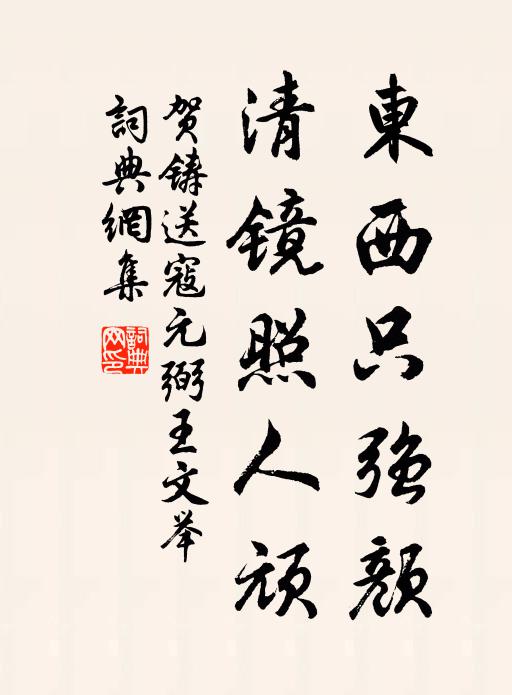 東西只強顏
清镜照人頑
贺鑄送寇元弼王文举
詞典網集
詞典网印